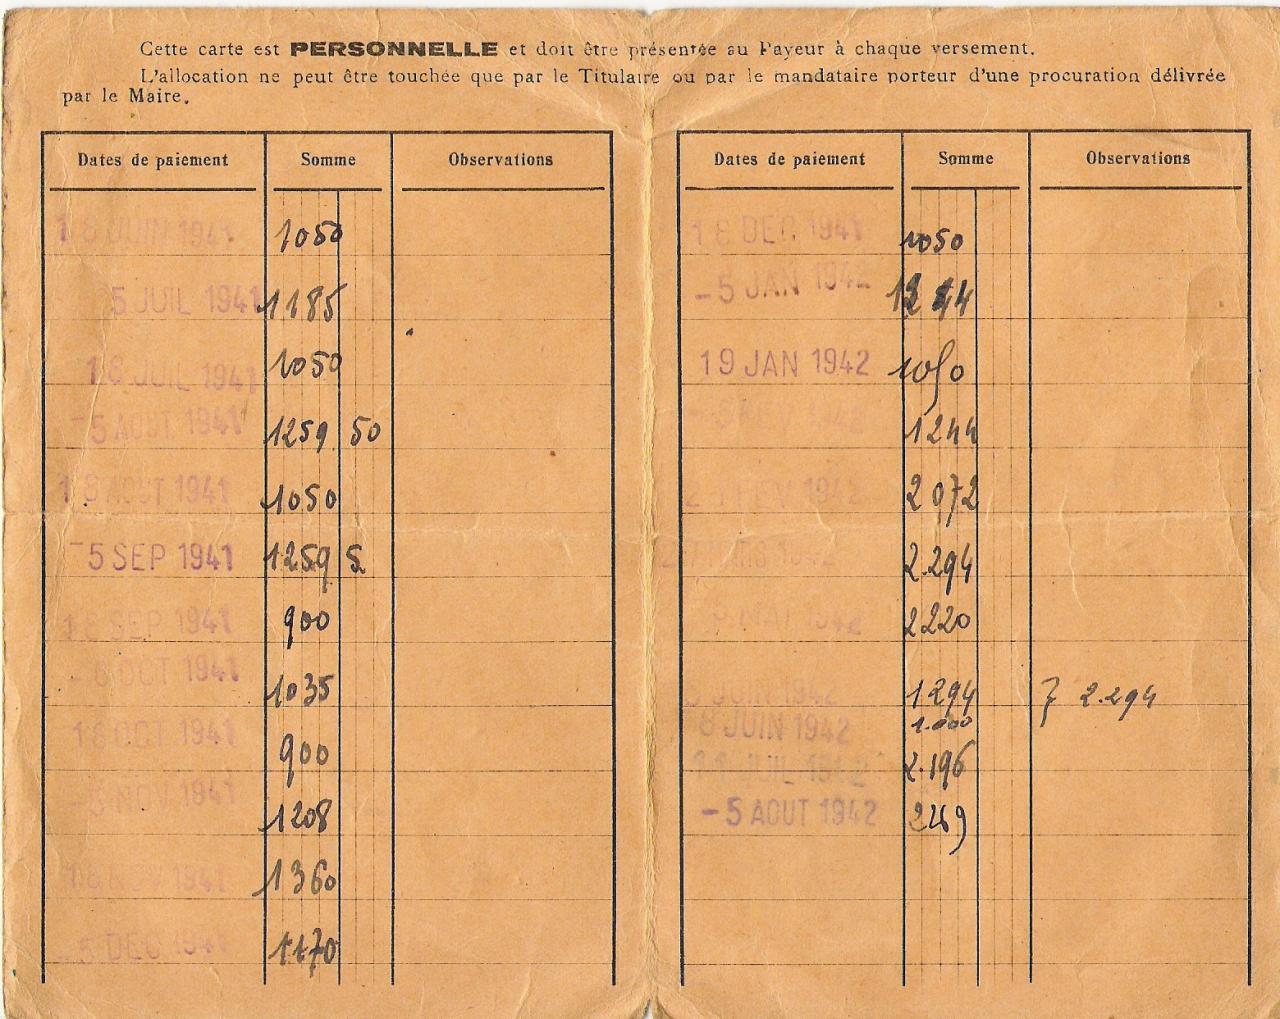 Cette carte est PERSONNELLE et doit être présentée au Payeur à chaque versement.
L'allocation ne peut être touchée que par le Titulaire ou par le mandataire porteur d'une procuration délivrée
par le Maire.
Dates de paiement Somme Observations
18 JUIN 1941 1050
5 JUIL 1941 1185
18 JUIL 1941 1050
-5 AOUT 1941 1259 50
18 AOUT 1941 1050
-5 SEP 1941 1259 5
18 SEP 1941 900
-6 OCT 1941 1035
18 OCT 1941 900
NOV 1941 1208
18 NOV 1941 1360
-5 DEC 1941 1170
Dates de paiement Somme Observations
18 DEC 1941 1050
-5 JAN 1942 1244
19 JAN 1942 1050
1942 1244
1942 2072
1942 2.294
MAI 1942 2220
JUIN 1942 1294 2.294
8 JUIN 1942 1.000
11 JUIL 1942 2.196
-5 AOUT 1942 2269